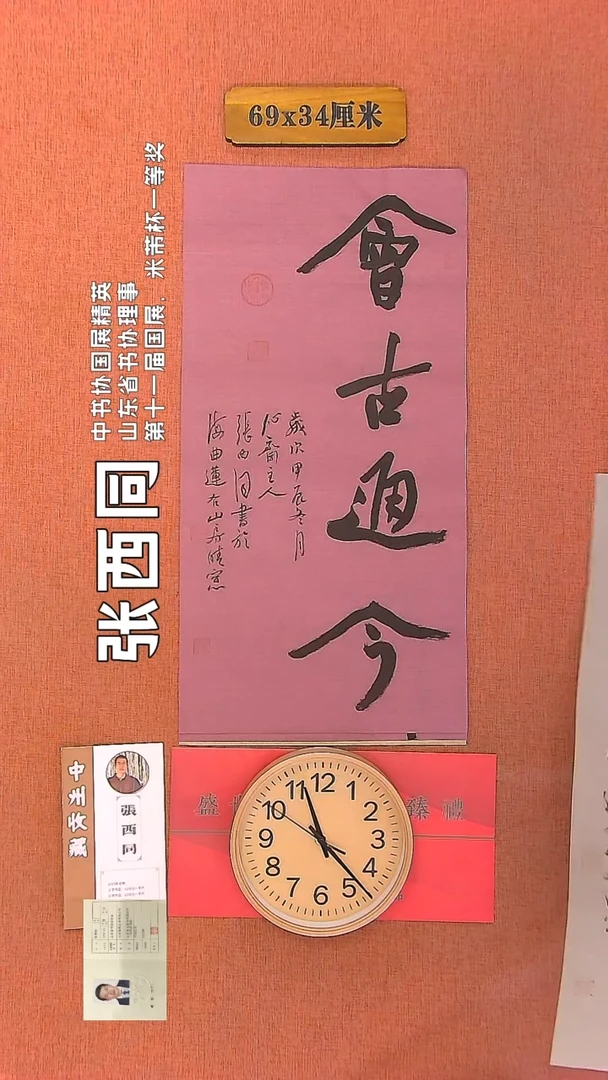 69x34厘米
會古通今
歲次甲辰冬月
心齋主人
張西同書於
中书协国展精英
山东省书协理事
第十一届国展，米芾杯一等奖
张西同
張西同
盛世 臻禮
12
1
2
3
4
5
6
7
8
9
10
11